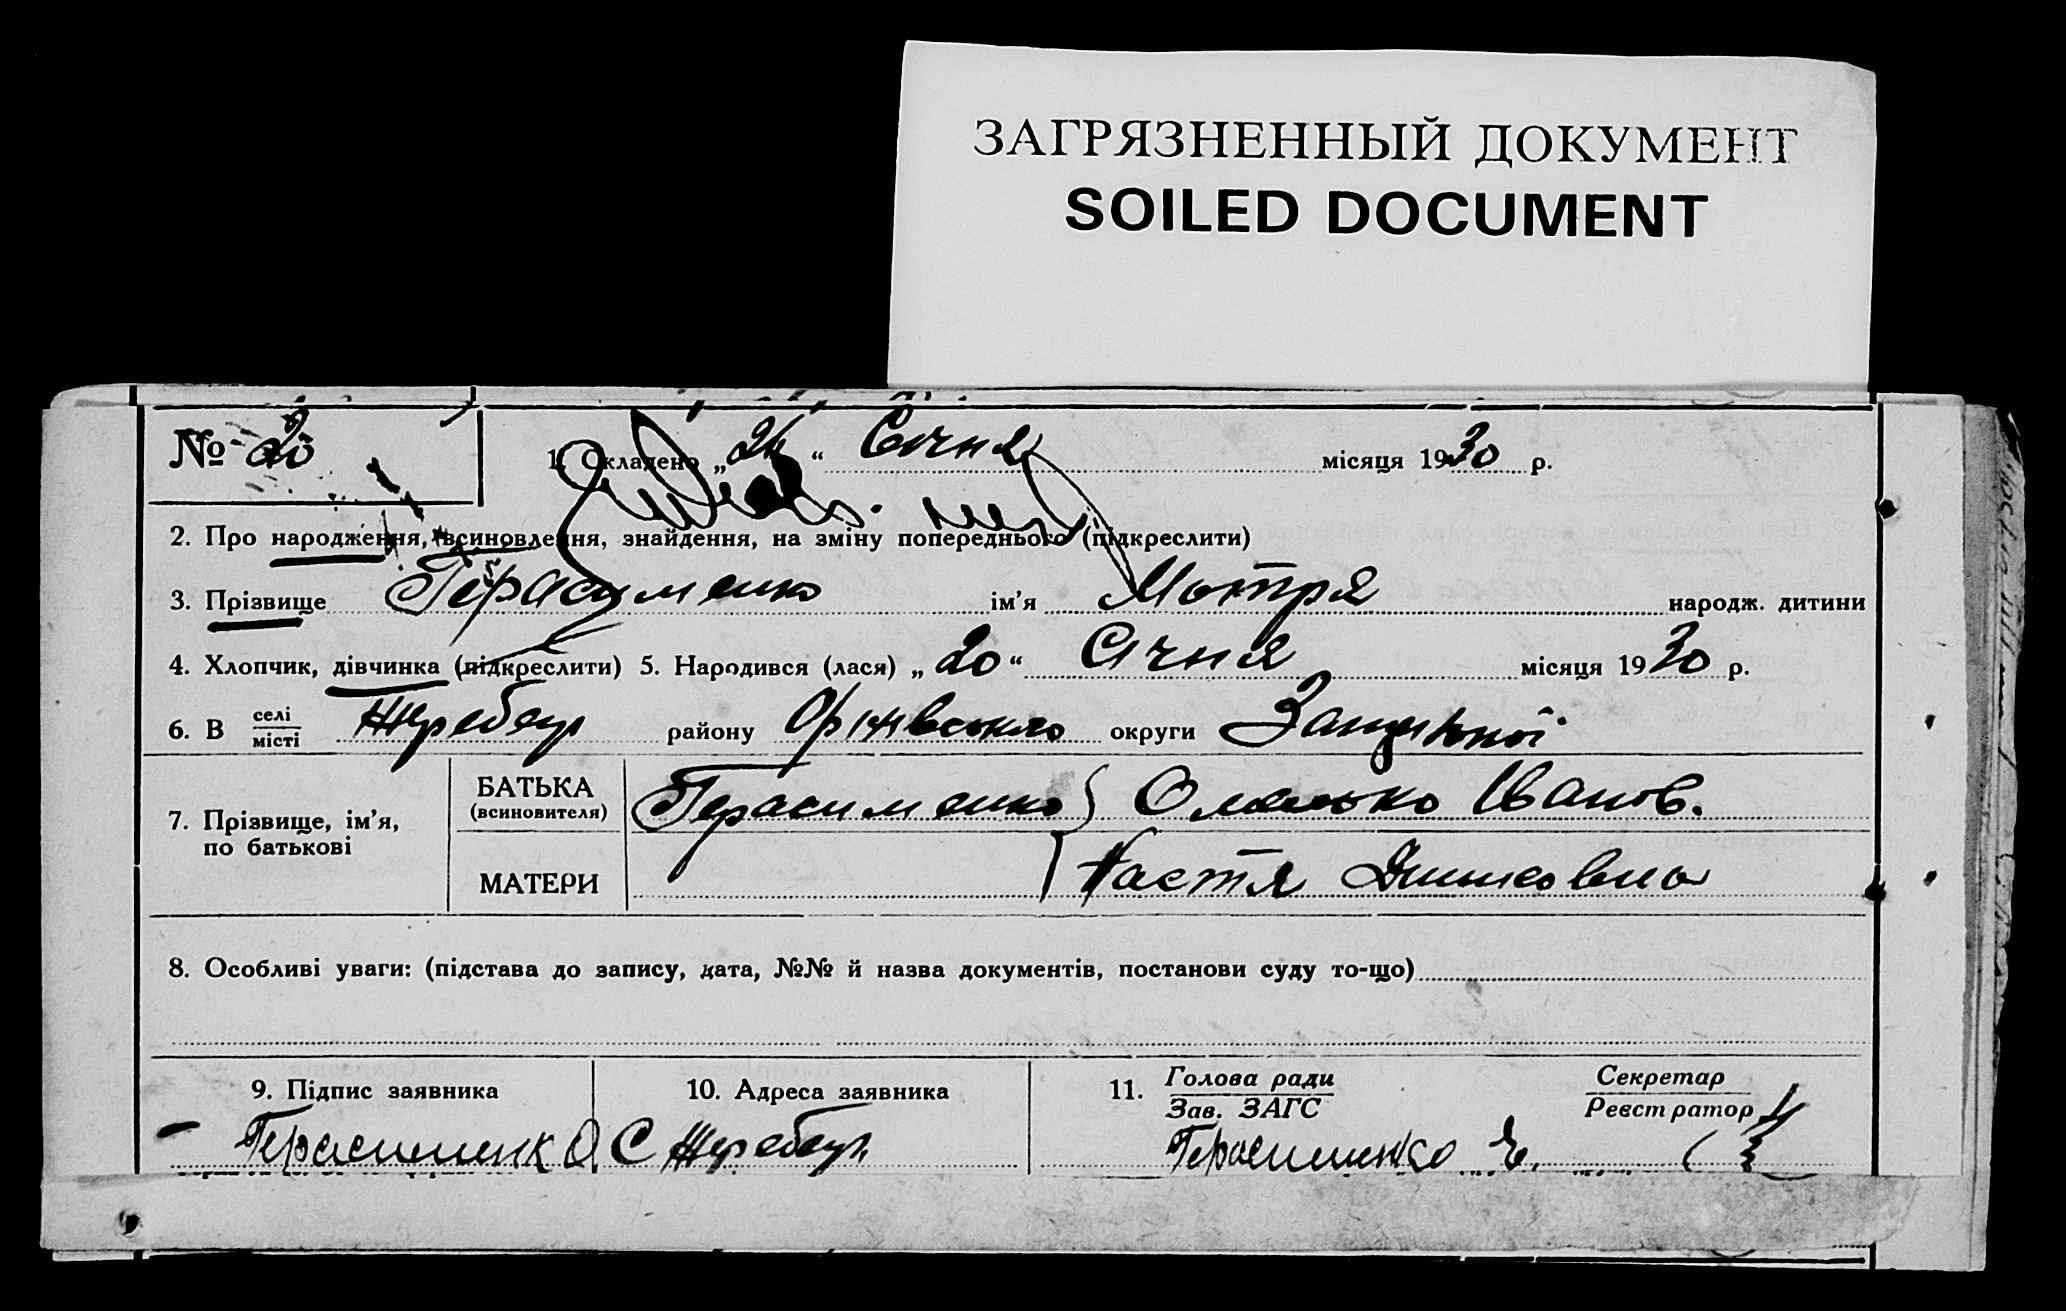 ЗАГРЯЗНЕННЫЙ ДОКУМЕНТ
SOILED DOCUMENT
№ 20
1. Складено „ “ Січня місяця 1930 р.
2. Про народження, всиновлення, знайдення, на зміну попереднього (підкреслити)
3. Прізвище Герасименко ім'я Мотря народж. дитини
4. Хлопчик, дівчинка (підкреслити) 5. Народився (лася) „20“ Січня місяця 1930 р.
6. В селі/місті Жеребець району Оріхівського округи Запорізької
7. Прізвище, ім'я, по батькові
БАТЬКА (всиновителя) Герасименко Омелько Іванов.
МАТЕРИ Настя
8. Особливі уваги: (підстава до запису, дата, №№ й назва документів, постанови суду то-що)
9. Підпис заявника 10. Адреса заявника 11. Голова ради Секретар
Зав. ЗАГС Реєстратор
Герасименк О С Жеребець Герасименко